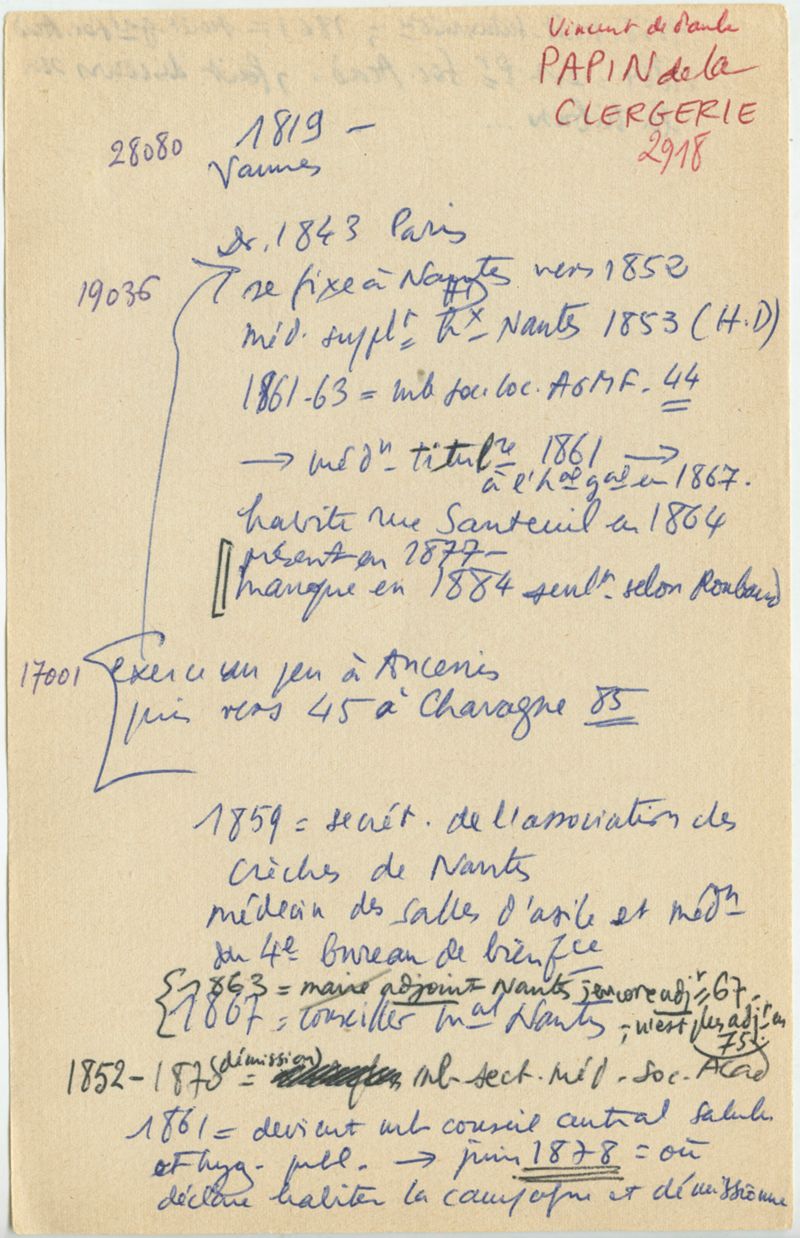 Vincent de Paule
PAPIN de la
CLERGERIE
2918
28080 1819 -
Vannes
Dr. 1843 Paris
19036 se fixe à Nantes vers 1852
HD
méd. supplt hx Nantes 1853 (H.D)
1861-63 = mb soc. loc. AGMF. 44
→ médn titulre 1861 →
à l'hôel gal en 1867.
habite rue Santeuil en 1864
présent en 1877 -
manque en 1884 seult selon Roubaud
17001 exerce un peu à Ancenis
puis vers 45 à Chavagne 85
1859 = secrét. de l'association des
Crèches de Nantes
médecin des salles d'asile et médn
du 4e bureau de bienfce
1863 = maire adjoint Nantes, encore adjt 67.
1867 = conseiller mal Nantes, n'est plus adjt en
75.
1852-1870 (démission) = mb sect. méd. soc. Acad
1861 = devient mb conseil central salub.
et hyg. publ. → juin 1878 = où
déclare habiter la campagne et démissionne